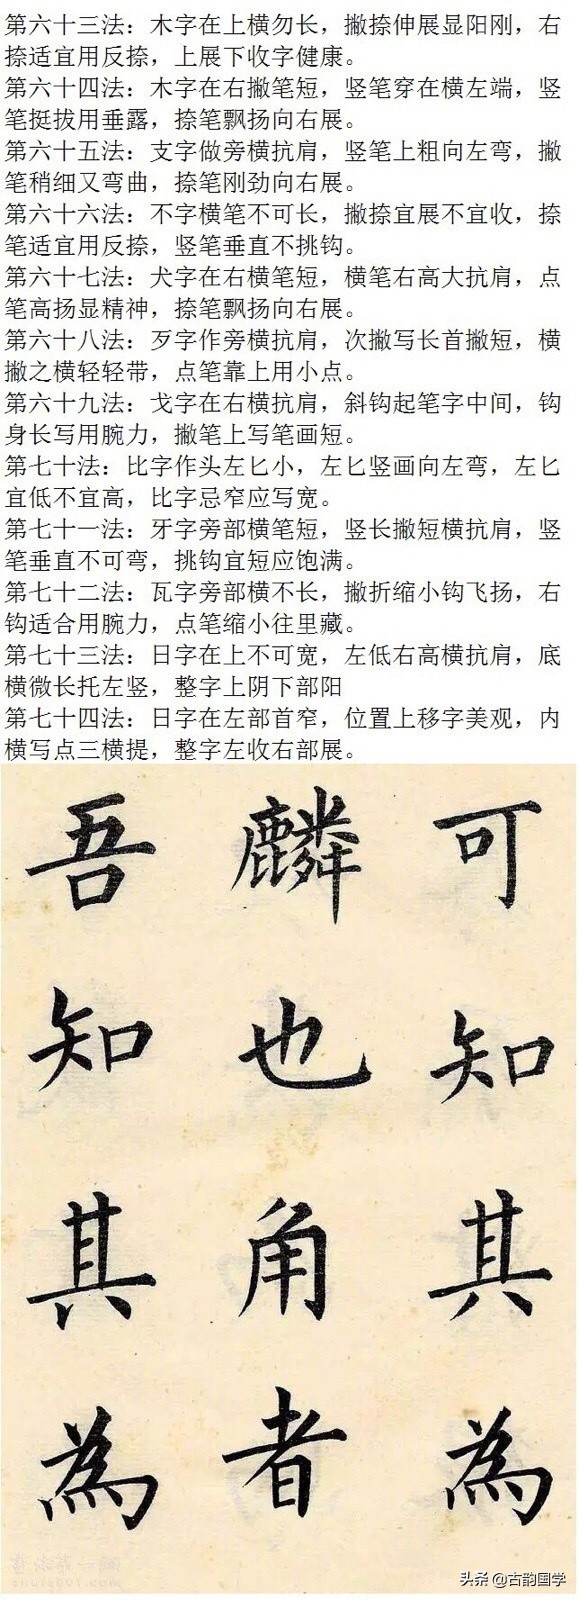 第六十三法：木字在上横勿长，撇捺伸展显阳刚，右
捺适宜用反捺，上展下收字健康。
第六十四法：木字在右撇笔短，竖笔穿在横左端，竖
笔挺拔用垂露，捺笔飘扬向右展。
第六十五法：支字做旁横抗肩，竖笔上粗向左弯，撇
笔稍细又弯曲，捺笔刚劲向右展。
第六十六法：不字横笔不可长，撇捺宜展不宜收，捺
笔适宜用反捺，竖笔垂直不挑钩。
第六十七法：犬字在右横笔短，横笔右高大抗肩，点
笔高扬显精神，捺笔飘扬向右展。
第六十八法：歹字作旁横抗肩，次撇写长首撇短，横
撇之横轻轻带，点笔靠上用小点。
第六十九法：戈字在右横抗肩，斜钩起笔字中间，钩
身长写用腕力，撇笔上写笔画短。
第七十法：比字作头左匕小，左匕竖画向左弯，左匕
宜低不宜高，比字忌窄应写宽。
第七十一法：牙字旁部横笔短，竖长撇短横抗肩，竖
笔垂直不可弯，挑钩宜短应饱满。
第七十二法：瓦字旁部横不长，撇折缩小钩飞扬，右
钩适合用腕力，点笔缩小往里藏。
第七十三法：日字在上不可宽，左低右高横抗肩，底
横微长托左竖，整字上阴下部阳
第七十四法：日字在左部首窄，位置上移字美观，内
横写点三横提，整字左收右部展。
可知其為
麟也角者
吾知其為
头条@古韵国学